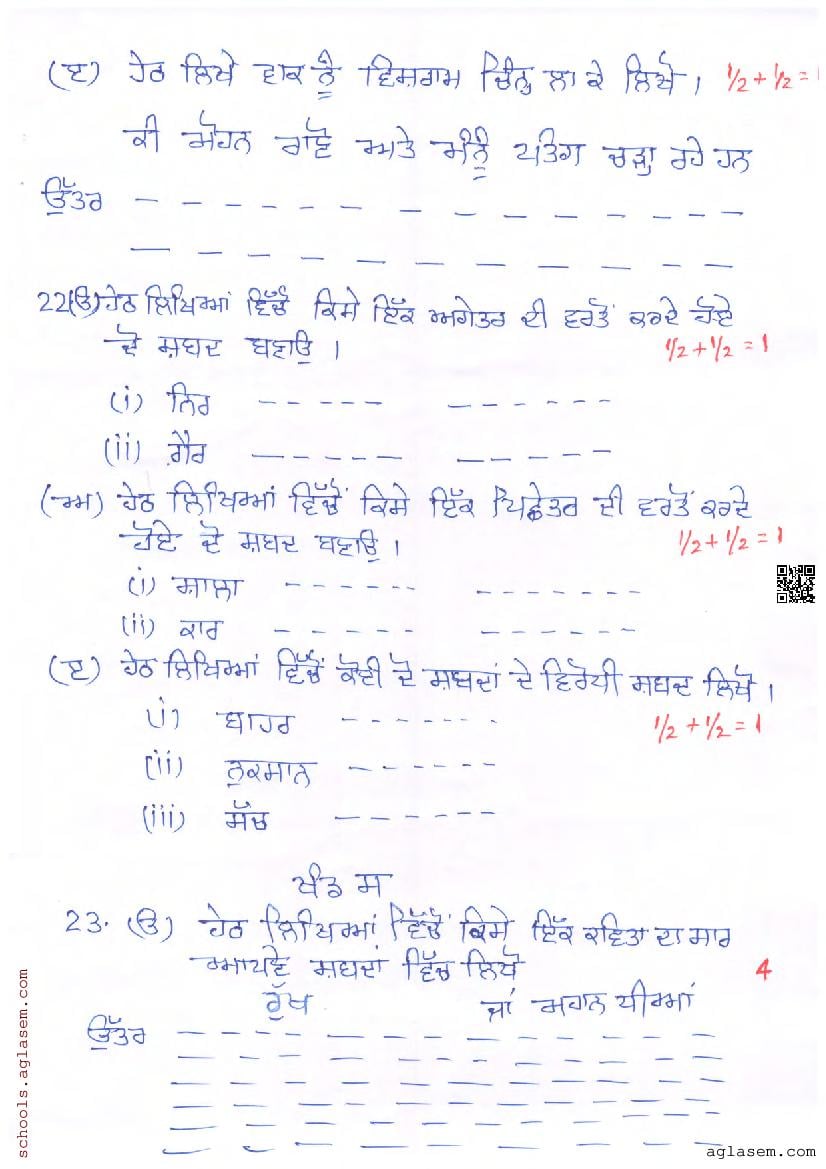 (ੲ) ਹੇਠ ਲਿਖੇ ਵਾਕ ਨੂੰ ਵਿਸ਼ਰਾਮ ਚਿੰਨ੍ਹ ਲਾ ਕੇ ਲਿਖੋ। 1/2 + 1/2 = 1
ਕੀ ਸੋਹਨ ਰਾਵੋ ਅਤੇ ਮੰਨੂੰ ਪਤੰਗ ਚੜ੍ਹਾ ਰਹੇ ਹਨ
ਉੱਤਰ
22(ੳ) ਹੇਠ ਲਿਖਿਆਂ ਵਿੱਚੋਂ ਕਿਸੇ ਇੱਕ ਅਗੇਤਰ ਦੀ ਵਰਤੋਂ ਕਰਦੇ ਹੋਏ
ਦੋ ਸ਼ਬਦ ਬਣਾਓ। 1/2 + 1/2 = 1
(i) ਨਿਰ
(ii) ਗ਼ੈਰ
(ਅ) ਹੇਠ ਲਿਖਿਆਂ ਵਿੱਚੋਂ ਕਿਸੇ ਇੱਕ ਪਿਛੇਤਰ ਦੀ ਵਰਤੋਂ ਕਰਦੇ
ਹੋਏ ਦੋ ਸ਼ਬਦ ਬਣਾਓ। 1/2 + 1/2 = 1
(i) ਸ਼ਾਲਾ
(ii) ਕਾਰ
(ੲ) ਹੇਠ ਲਿਖਿਆਂ ਵਿੱਚੋਂ ਕੋਈ ਦੋ ਸ਼ਬਦਾਂ ਦੇ ਵਿਰੋਧੀ ਸ਼ਬਦ ਲਿਖੋ।
(i) ਬਾਹਰ 1/2 + 1/2 = 1
(ii) ਨੁਕਸਾਨ
(iii) ਸੱਚ
ਖੰਡ ਸ
23. (ੳ) ਹੇਠ ਲਿਖਿਆਂ ਵਿੱਚੋਂ ਕਿਸੇ ਇੱਕ ਕਵਿਤਾ ਦਾ ਸਾਰ
ਆਪਣੇ ਸ਼ਬਦਾਂ ਵਿੱਚ ਲਿਖੋ 4
ਰੁੱਖ ਜਾਂ ਮਹਨ ਧੀਆਂ
ਉੱਤਰ
schools.aglasem.com
aglasem.com